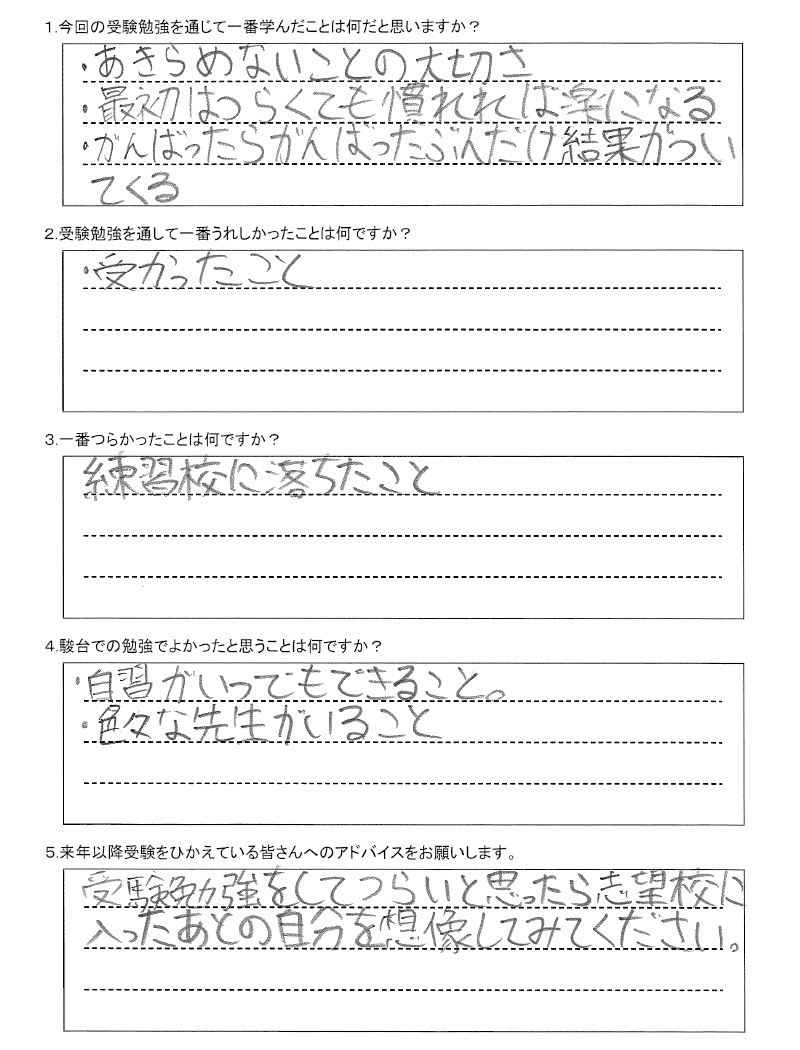 1.今回の受験勉強を通じて一番学んだことは何だと思いますか？
・あきらめないことの大切さ
・最初はつらくても慣れれば楽になる
・がんばったらがんばったぶんだけ結果がつい
てくる
2.受験勉強を通して一番うれしかったことは何ですか？
・受かったこと
3.一番つらかったことは何ですか？
練習校に落ちたこと
4.駿台での勉強でよかったと思うことは何ですか？
・自習がいつでもできること。
・色々な先生がいること
5.来年以降受験をひかえている皆さんへのアドバイスをお願いします。
受験勉強をしてつらいと思ったら志望校に
入ったあとの自分を想像してみてください。